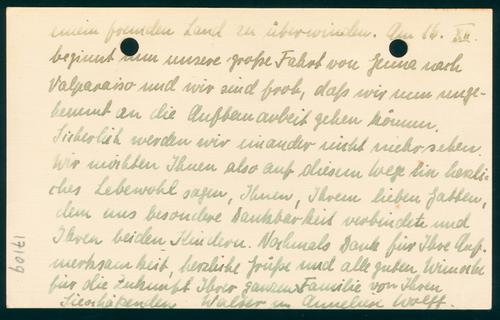 einem fremden Land zu überwinden. Am 16. XII.
beginnt nun unsere große Fahrt von Genua nach
Valparaiso und wir sind froh, daß wir nun unge-
hemmt an die Aufbauarbeit gehen können.
Sicherlich werden wir einander nicht mehr sehen.
Wir möchten Ihnen also auf diesem Wege ein herzli-
ches Lebewohl sagen, Ihnen, Ihrem lieben Gatten,
dem uns besondere Dankbarkeit verbindet und
Ihren beiden Kindern. Nochmals Dank für Ihre Auf-
merksamkeit, herzliche Grüße und alle guten Wünsche
für die Zukunft Ihrer ganzen Familie von Ihren
Sie schätzenden Walter u. Anneliese Wolff.
17109